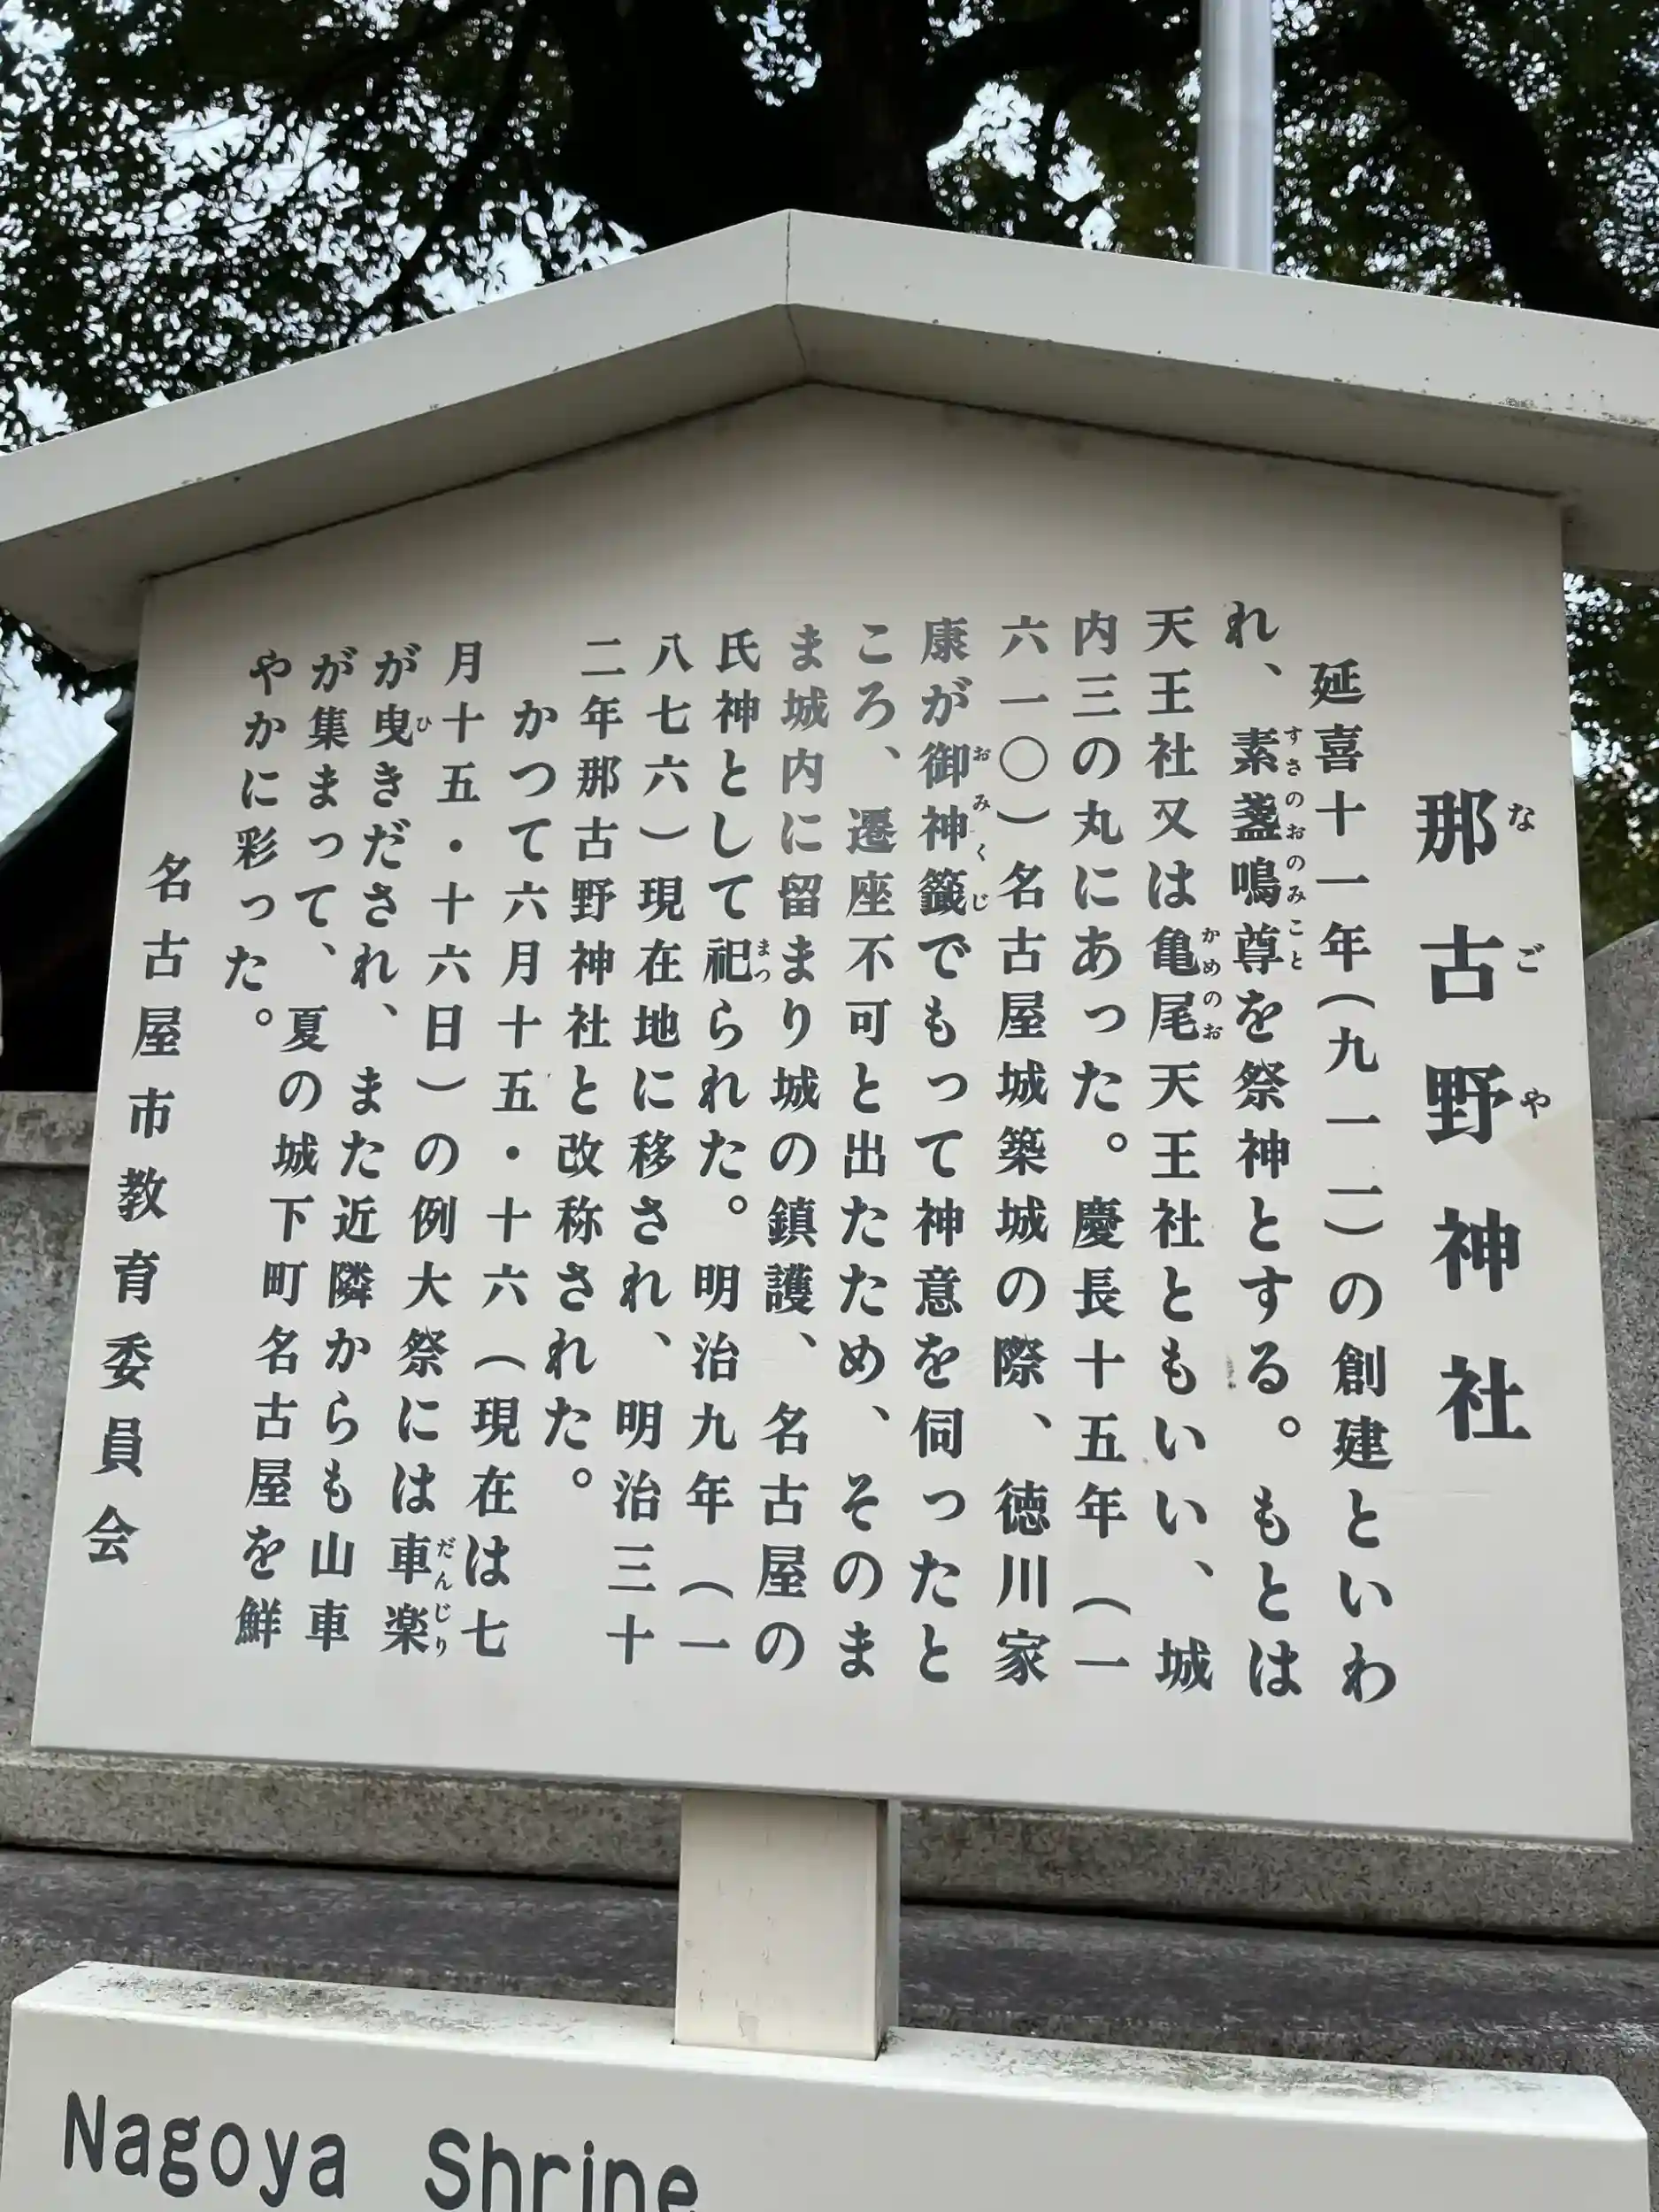 那古野神社
なごや
延喜十一年（九一一）の創建といわ
れ、素盞鳴尊を祭神とする。もとは
すさのおのみこと
天王社又は亀尾天王社ともいい、城
かめのお
内三の丸にあった。慶長十五年（一
六一〇）名古屋城築城の際、徳川家
康が御神籤でもって神意を伺ったと
おみくじ
ころ、遷座不可と出たため、そのま
ま城内に留まり城の鎮護、名古屋の
氏神として祀られた。明治九年（一
まつ
八七六）現在地に移され、明治三十
二年那古野神社と改称された。
かつて六月十五・十六（現在は七
月十五・十六日）の例大祭には車楽
だんじり
が曳きだされ、また近隣からも山車
ひ
が集まって、夏の城下町名古屋を鮮
やかに彩った。
名古屋市教育委員会
Nagoya Shrine